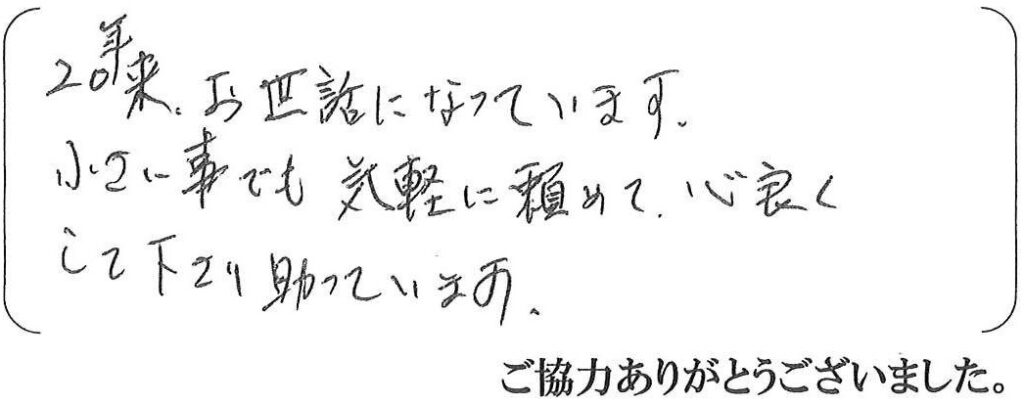 20年来、お世話になっています。
小さい事でも気軽に頼めて、心良く
して下さり助っています。
ご協力ありがとうございました。